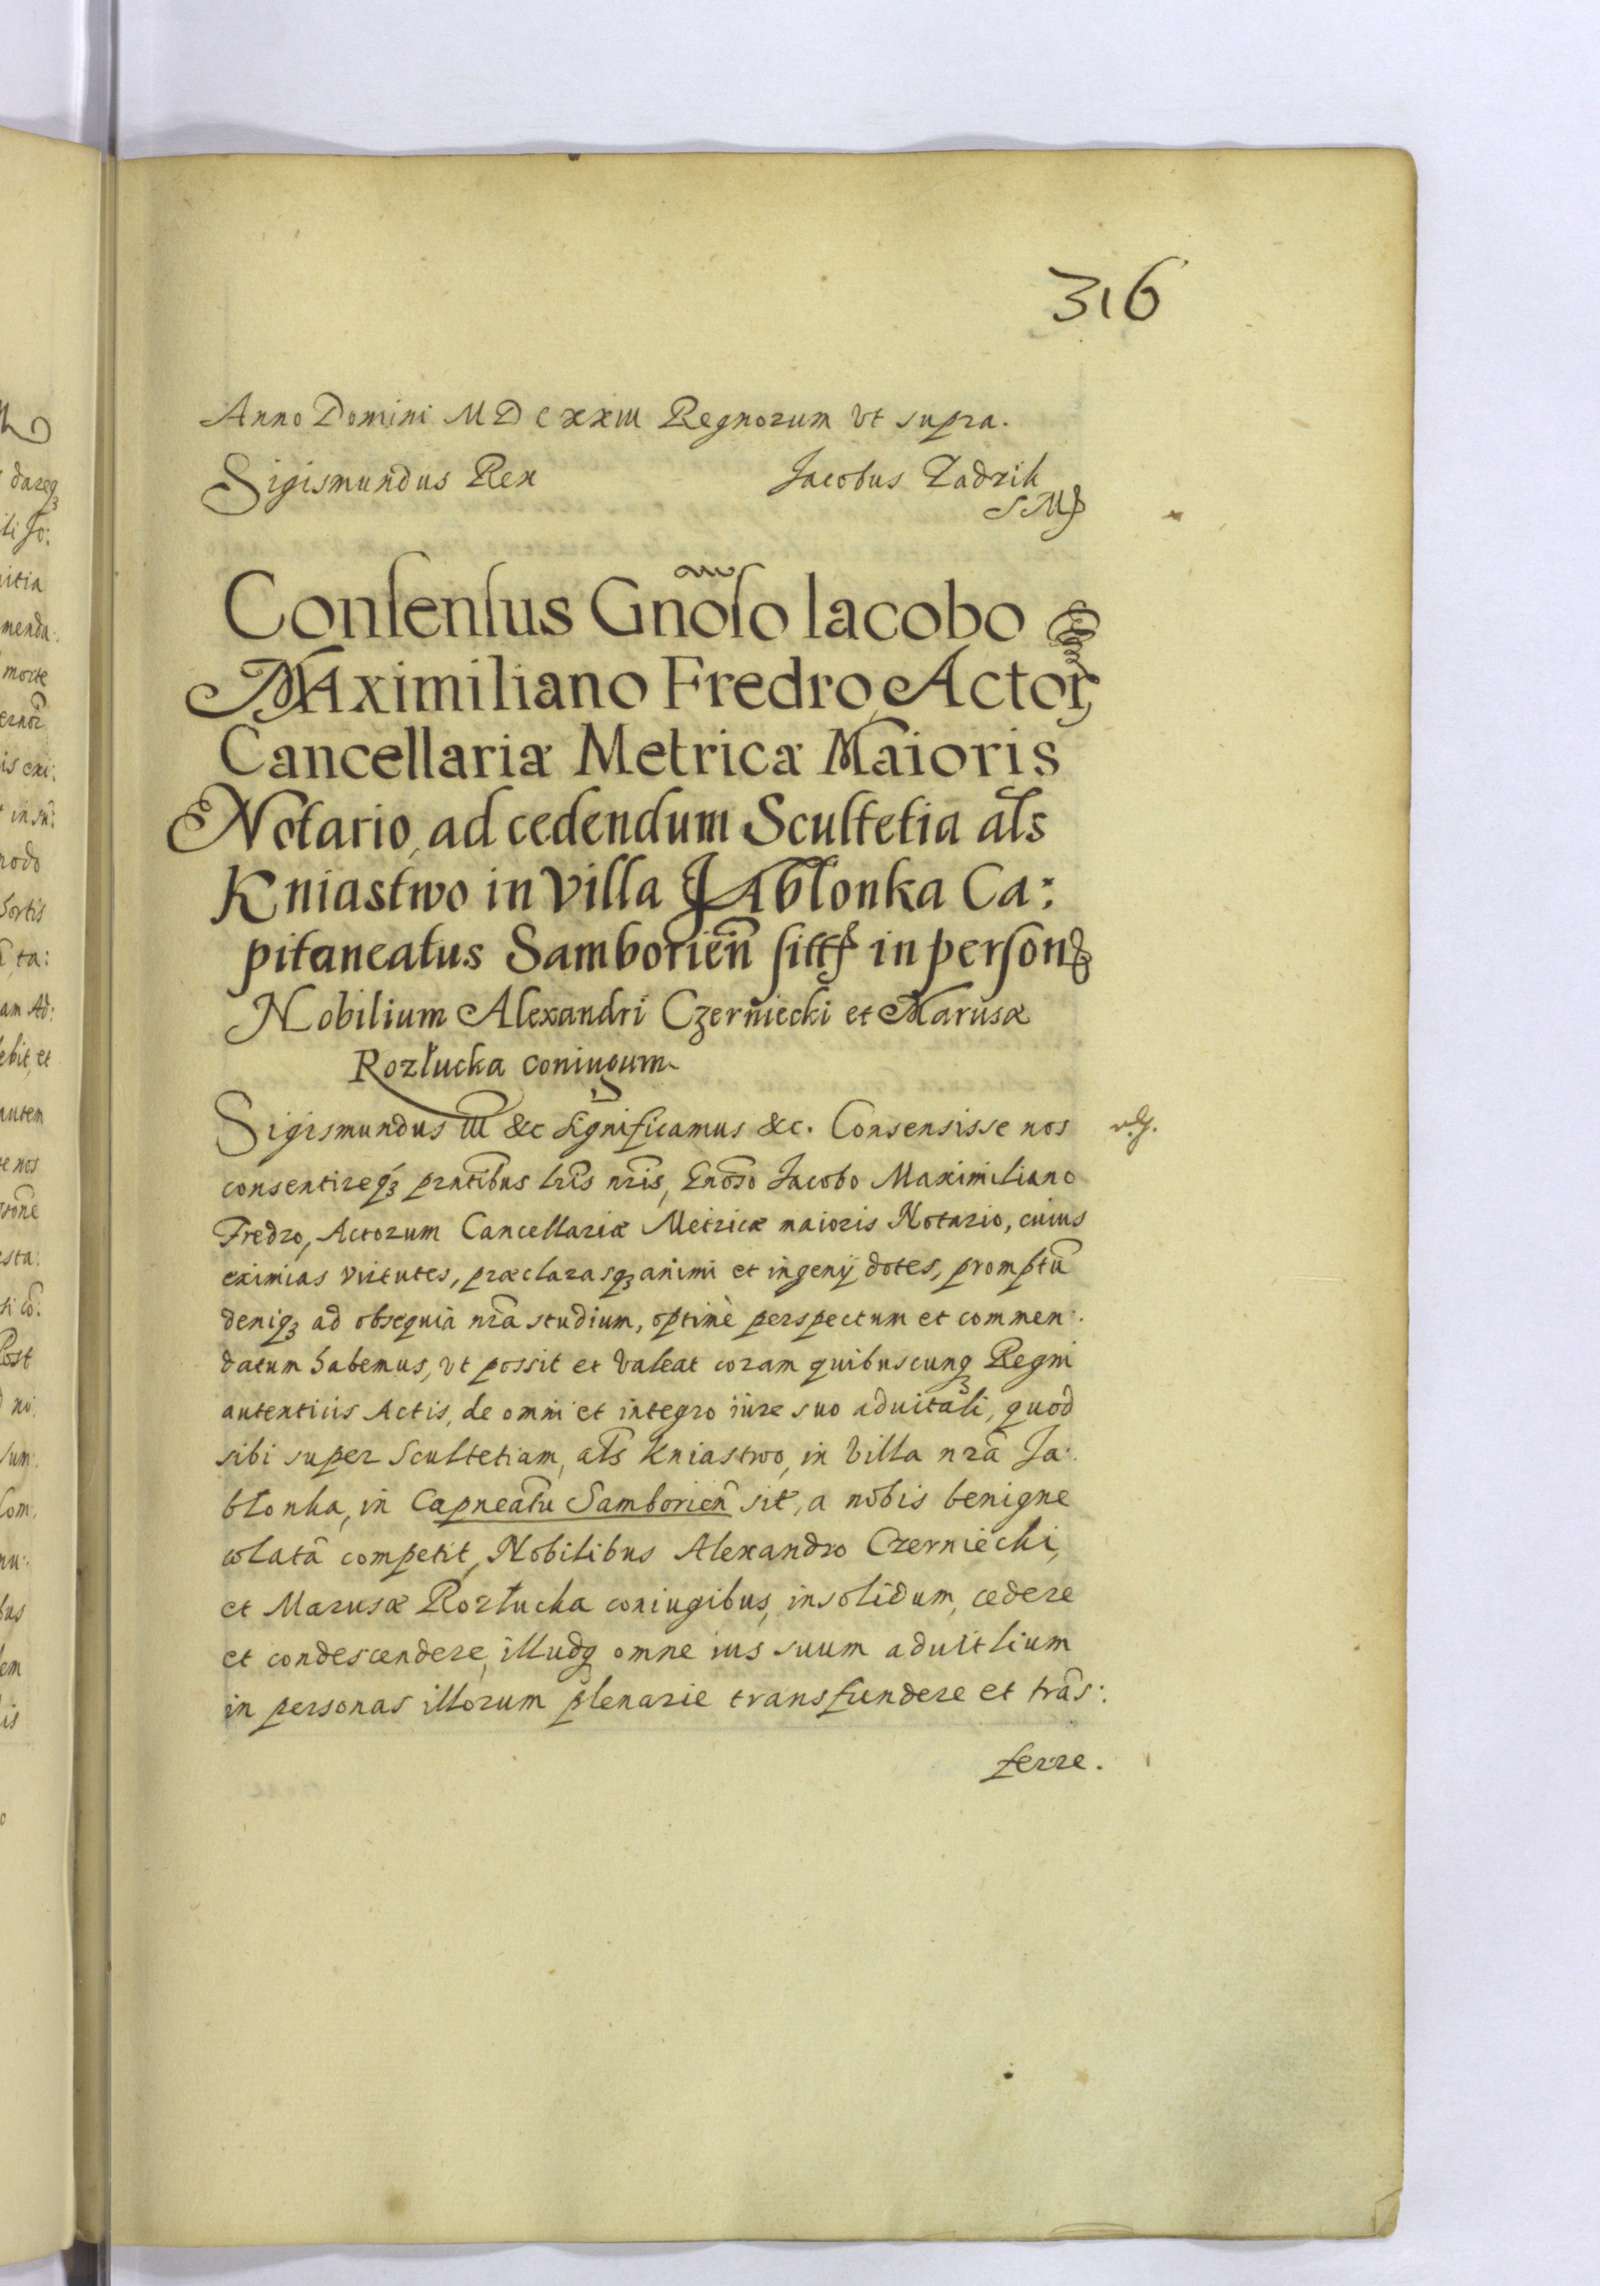 316
Anno Domini MDCXXIII Regnorum vt supra.
Sigismundus Rex Jacobus Zadzik
SMP
Consensus Gnoso Iacobo
Maximiliano Fredro, Actor
Cancellariæ Metricæ Maioris
Notario, ad cedendum Scultetia als
Kniastwo in villa Jablonka Ca:
pitaneatus Samborien in person
Nobilium Alexandri Czerniecki et Marusæ
Rozłucka coniugum
Sigismundus III &c Significamus &c. Consensisse nos
consentireq prntibus lris nris, Gnoso Jacobo Maximiliano
Fredro, Actorum Cancellariæ Metricæ maioris Notario, cuius
eximias virtutes, præclarasq animi et ingenij dotes, promptu
deniq ad obsequia nra studium, optimè perspectum et commen:
datum habemus, vt possit et valeat coram quibuscunq Regni
autenticis Actis, de omni et integro iure suo aduitali, quod
sibi super Scultetiam, als Kniastwo, in Villa nra Ja:
blonka, in Capneatu Samborien sit, a nobis benigne
colata competit, Nobilibus Alexandro Czerniecki,
et Marusæ Rozłucka coniugibus, insolidum, cedere
et condescendere, illudq omne ius suum aduitlium
in personas illorum plenarie transfundere et tras:
ferre.